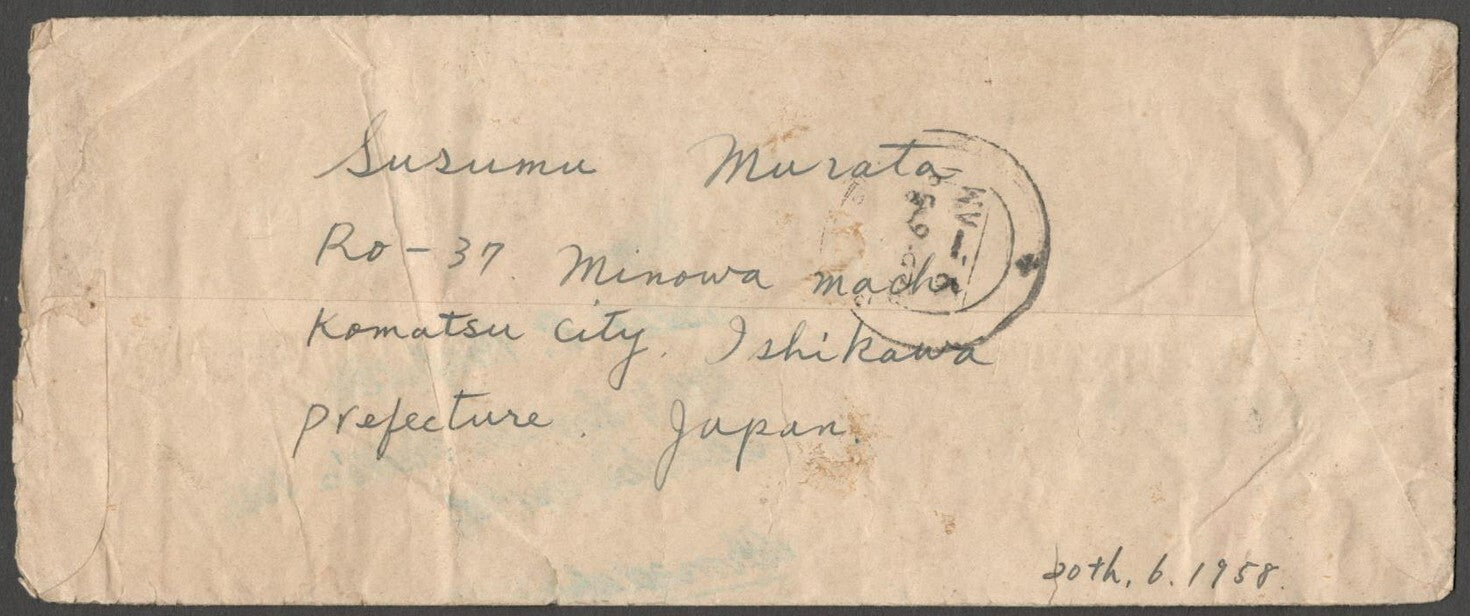 Susumu Murata
Ro-37. Minowa machi
Komatsu city. Ishikawa
prefecture. Japan.
20th, 6. 1958.
AM